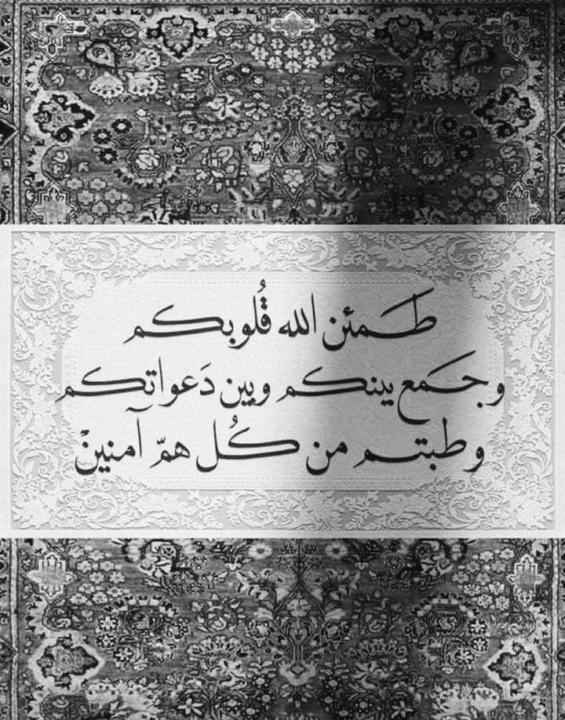 طمئن الله قُلوبكم
وجمع بينكم وبين دَعواتكم
وطبتم من كُل همّ آمنينْ